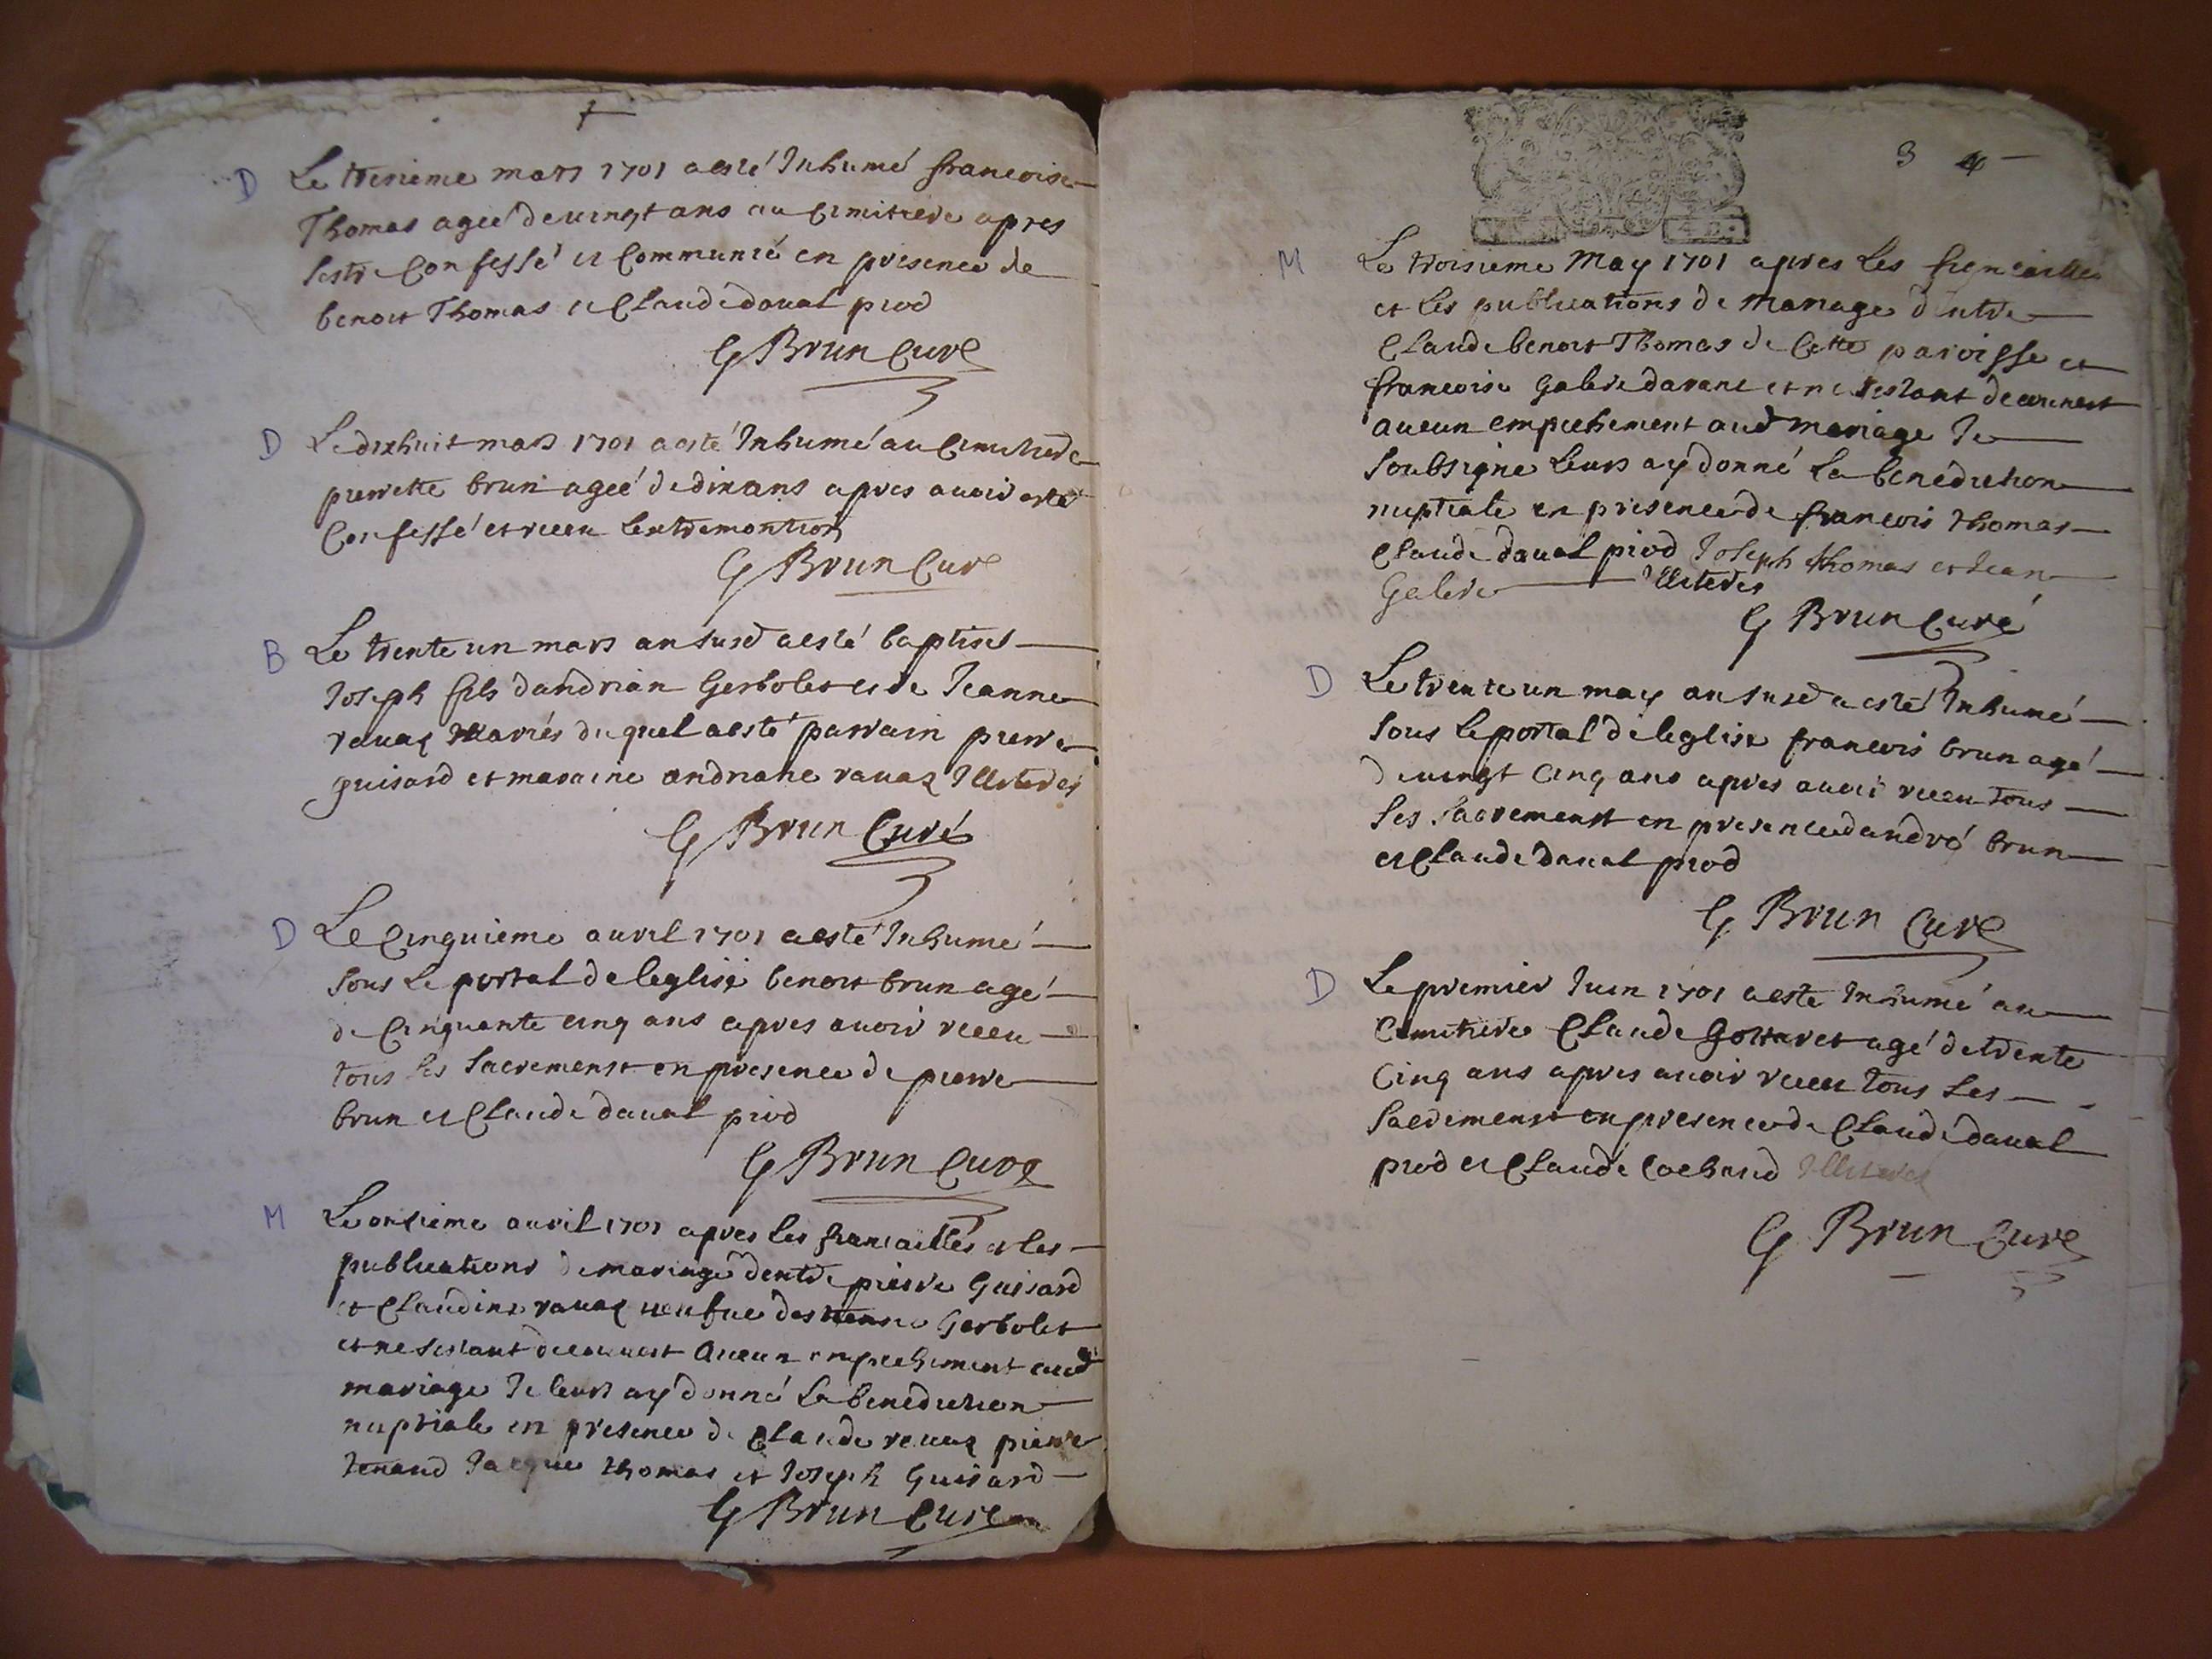 D Le tresieme mars 1701 a esté Inhumé francoise
Thomas ageé de vingt ans au Cimitiere apres
sestre Confessé et Communié en presence de
benoit Thomas et Claude daval piod
G Brun Curé
D Le dixhuit mars 1701 a esté Inhumé au Cimitiere
pierrette brun ageé de dix ans apres avoir esté
Confessé et receu
G Brun Curé
B Le trente un mars an susd a esté baptisé
Joseph fils dandrian Gerbolet et de Jeanne
ravaz Mariés duquel a esté parrain pierre
guisard et maraine andriane ravaz Illiteres
G Brun Curé
D Le Cinquieme avril 1701 a esté Inhumé
sous le portal de leglise benoit brun agé
de Cinquante cinq ans apres avoir receu
tous les Sacrements en presence de pierre
brun et Claude daval piod
G Brun Curé
M Le onzieme avril 1701 apres les fiancailles et les
publications de mariage dentre pierre Guisard
et Claudine ravaz veufue destienne Gerbolet
et ne sestant decouvert Aucun empechement aud
mariage Je leurs ay donné la benediction
nuptiale en presence de Claude ravaz pierre
Jacques thomas et Joseph Guisard
G Brun Curé
3
M Le troisieme May 1701 apres les fiencailles
et les publications de Mariage dentre
Claude benoit Thomas de Cette paroisse et
francoise Galere et ne sestant decouvert
aucun empechement aud mariage Je
soubsigne leurs ay donné la benediction
nuptiale en presence de francois thomas
Claude daval piod Joseph thomas et Jean
Galere Illiteres
G Brun Curé
D Le trente un may an susd a esté Inhumé
sous le portal de leglise francois brun agé
de vingt Cinq ans apres avoir receu tous
les sacrements en presence dandré brun
et Claude daval piod
G Brun Curé
D Le premier Juin 1701 a esté Inhumé au
Cimitiere Claude agé de trente
Cinq ans apres avoir receu tous les
Sacrements en presence de Claude daval
piod et Claude Cochard Illiteres
G Brun Curé